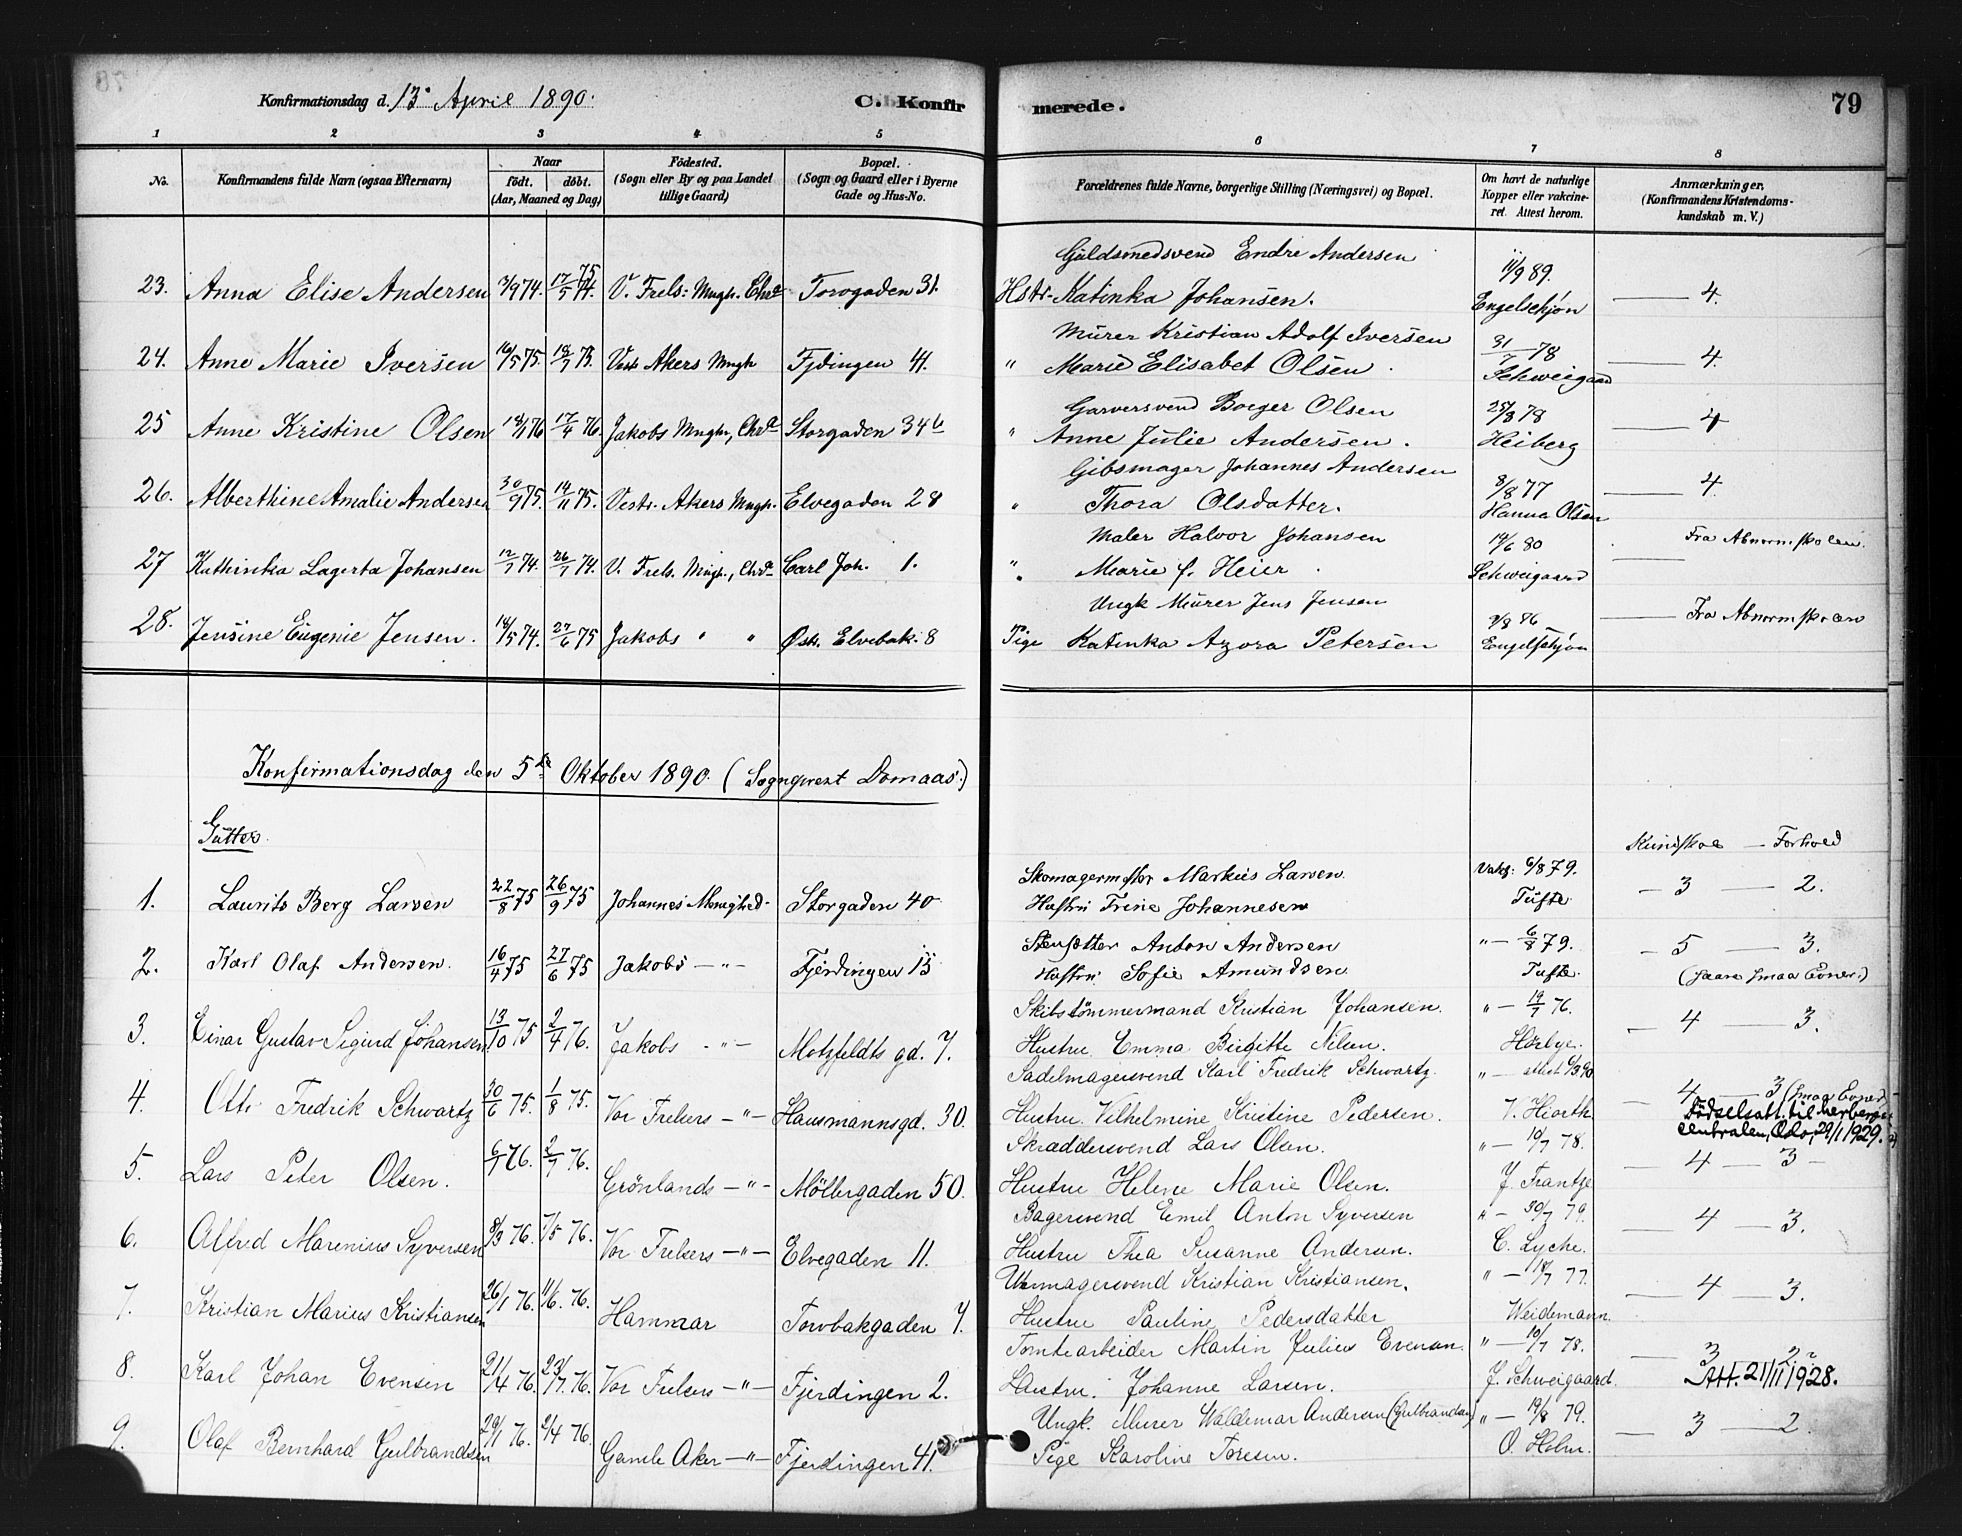 Konfirmationsdag d. 13. April 1890. C. Konfirmerede. 79
1 2 3 4 5 6 7 8
No. Konfirmandens fulde Navn (ogsaa Efternavn) Naar født. døbt. (Aar, Maaned og Dag) Födested. (Sogn eller By og paa Landet tillige Gaard) Bopæl. (Sogn og Gaard eller i Byerne Gade og Hus-No. Forældrenes fulde Navne, borgerlige Stilling (Næringsvei) og Bopæl. Om havt de naturlige Kopper eller vakcineret. Attest herom. Anmærkninger. (Konfirmandens Kristendomskundskab m. V.)
Guldsmedsvend Endre Andersen 11/9 89.
23. Anna Elise Andersen 74. 17/5 75 V. Frels: Mngh. Chra Torvgaden 31. Hstr. Katinka Johansen. Engelschjøn — 4.
Murer Kristian Adolf Iversen 31 78
24. Anne Marie Iversen 16/5 75. 18/7 75. Vest. Akers Mngh Fjdingen 41. " Marie Elisabet Olsen. Schweigaard — 4.
Garversvend Borger Olsen 25/8 78
25 Anne Kristine Olsen 18/1 76 17/4 76 Jakobs Mngh, Chra Storgaden 34b " Anne Julie Andersen. Heiberg — 4
Gibsmager Johannes Andersen 8/8 77
26. Alberthine Amalie Andersen 30/9 75. 14/11 75. Vestr. Akers Mngh. Elvegaden 28 " Thora Olsdatter. Hanna Olsen — 4.
Maler Halvor Johansen 19/6 80 Fra Abnormskolen.
27 Kathinka Lagerta Johansen 12/7 74. 26/7 74. V. Frels. Mngh., Chra Carl Joh. 1. " Marie f. Heier. Schweigaard —
Ungk Murer Jens Jensen 86 Fra Abnormskolen
28. Jensine Eugenie Jensen. 18/5 74. 27/6 75 Jakobs " " Østr. Elvebak. 8 Pige Katinka Azora Petersen Engelschjøn
Konfirmationsdag den 5te Oktober 1890. (Sogneprest Domaas.)
Gutter. Kundskab — Forhold
Skomagermester Markus Larsen. Vakc: 6/8 79.
1. Laurits Berg Larsen 22/8 75 26/9 75 Johannes Menighed Storgaden 40 Hustru Trine Johannesen Tufte — 3 — 2.
Stensætter Anton Andersen " — 6/8 79. — 5 — 3.
2. Karl Olaf Andersen. 16/4 75 27/6 75 Jakobs — " — Fjerdingen 15 Hustru Sofie Amundsen Tufte. (saare smaa Evner.)
Skibstömmermand Kristian Johansen. " — 19/7 76.
3. Einar Gustav Sigurd Johansen. 13/10 75 2/4 76. Jakobs — " — Motzfeldts gd. 7. Hustru Emma Birgitte Nilsen. Hörbye. — 4 — 3.
Sadelmagersvend Karl Fredrik Schwartz. " — attest 90
4. Otto Fredrik Schwartz 30/6 75. 1/8 75. Vor Frelsers — " — Hausmannsgd. 30. Hustru Vilhelmine Kristine Pedersen. Hiorth — 4 — 3 (smaa Evner)
Födselsatt. til herberge centralen, Oslo, 29/1 1929.
Skræddersvend Lars Olsen. " — 10/7 78.
5. Lars Peter Olsen. 6/1 76. 2/7 76. Grönlands — " — Möllergaden 50. Hustru Helene Marie Olsen. J. Frantze — 4 — 3 —
Bagersvend Emil Anton Syversen " — 30/7 79.
6. Alfred Marenius Syversen 8/3 76. 7/5 76. Vor Frelsers — " — Elvegaden 11. Hustru Thea Susanne Andersen. C. Lyche. — 4 — 3.
Uhrmagersvend Kristian Kristiansen. " — 18/7 77.
7. Kristian Marius Kristiansen 26/1 76. 11/6. 76. Hammar Torvbakgaden 7. Hustru Pauline Pedersdatter Weidemann. — 4 — 3.
Tomtearbeider Martin Julius Evensen. " — 10/7 78.
8. Karl Johan Evensen 21/4 76. 23/7 76. Vor Frelsers — " — Fjerdingen 2. Hustru Johanne Larsen. J. Schweigaard. — 3 — 2
Att. 21/11 1928.
Ungk. Murer Waldemar Andersen (Gulbrandsen) " — 19/8 79.
9. Olaf Bernhard Gulbrandsen 29/1 76. 2/4 76. Gamle Aker — " — Fjerdingen 41. Pige Karoline Toresen. O. Holm. — 3 — 2.